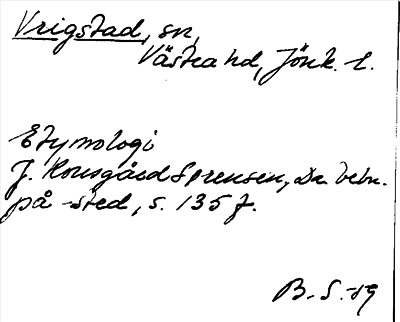 Vrigstad, sn,
Västra hd, Jönk. l.
Etymologi
J. Kousgård Sørensen, Da. bebn.
på -sted, s. 135 f.
B. S.-59